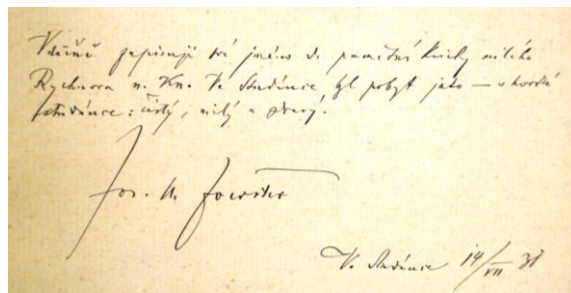 Vděčně zapisuji své jméno do pamětní knihy milého
Rychnova n. Kn. Ve Studánce byl pobyt jako — u
studánce: čistý, milý a zdravý.
Jos. M.
Ve Studánce 14/VII 31